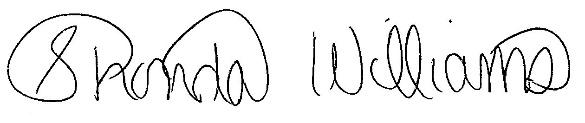 Shonda Williams